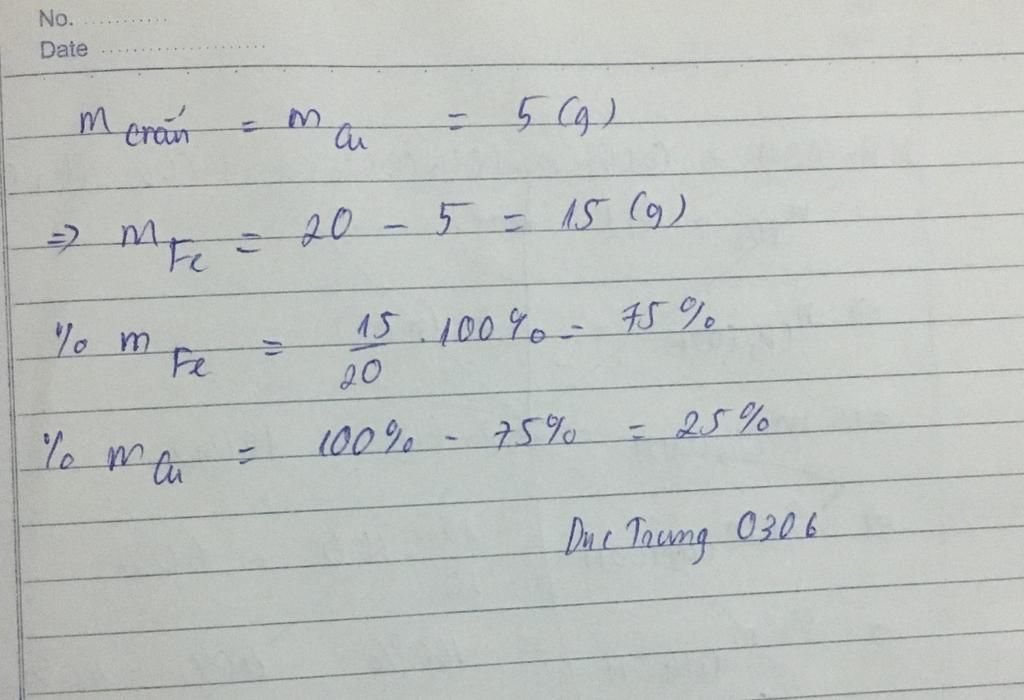 No. ............
Date ........................
m crắn = m Cu = 5 (g)
=> m Fe = 20 - 5 = 15 (g)
% m Fe = 15/20 . 100% = 75%
% m Cu = 100% - 75% = 25%
Duc Trung 0306